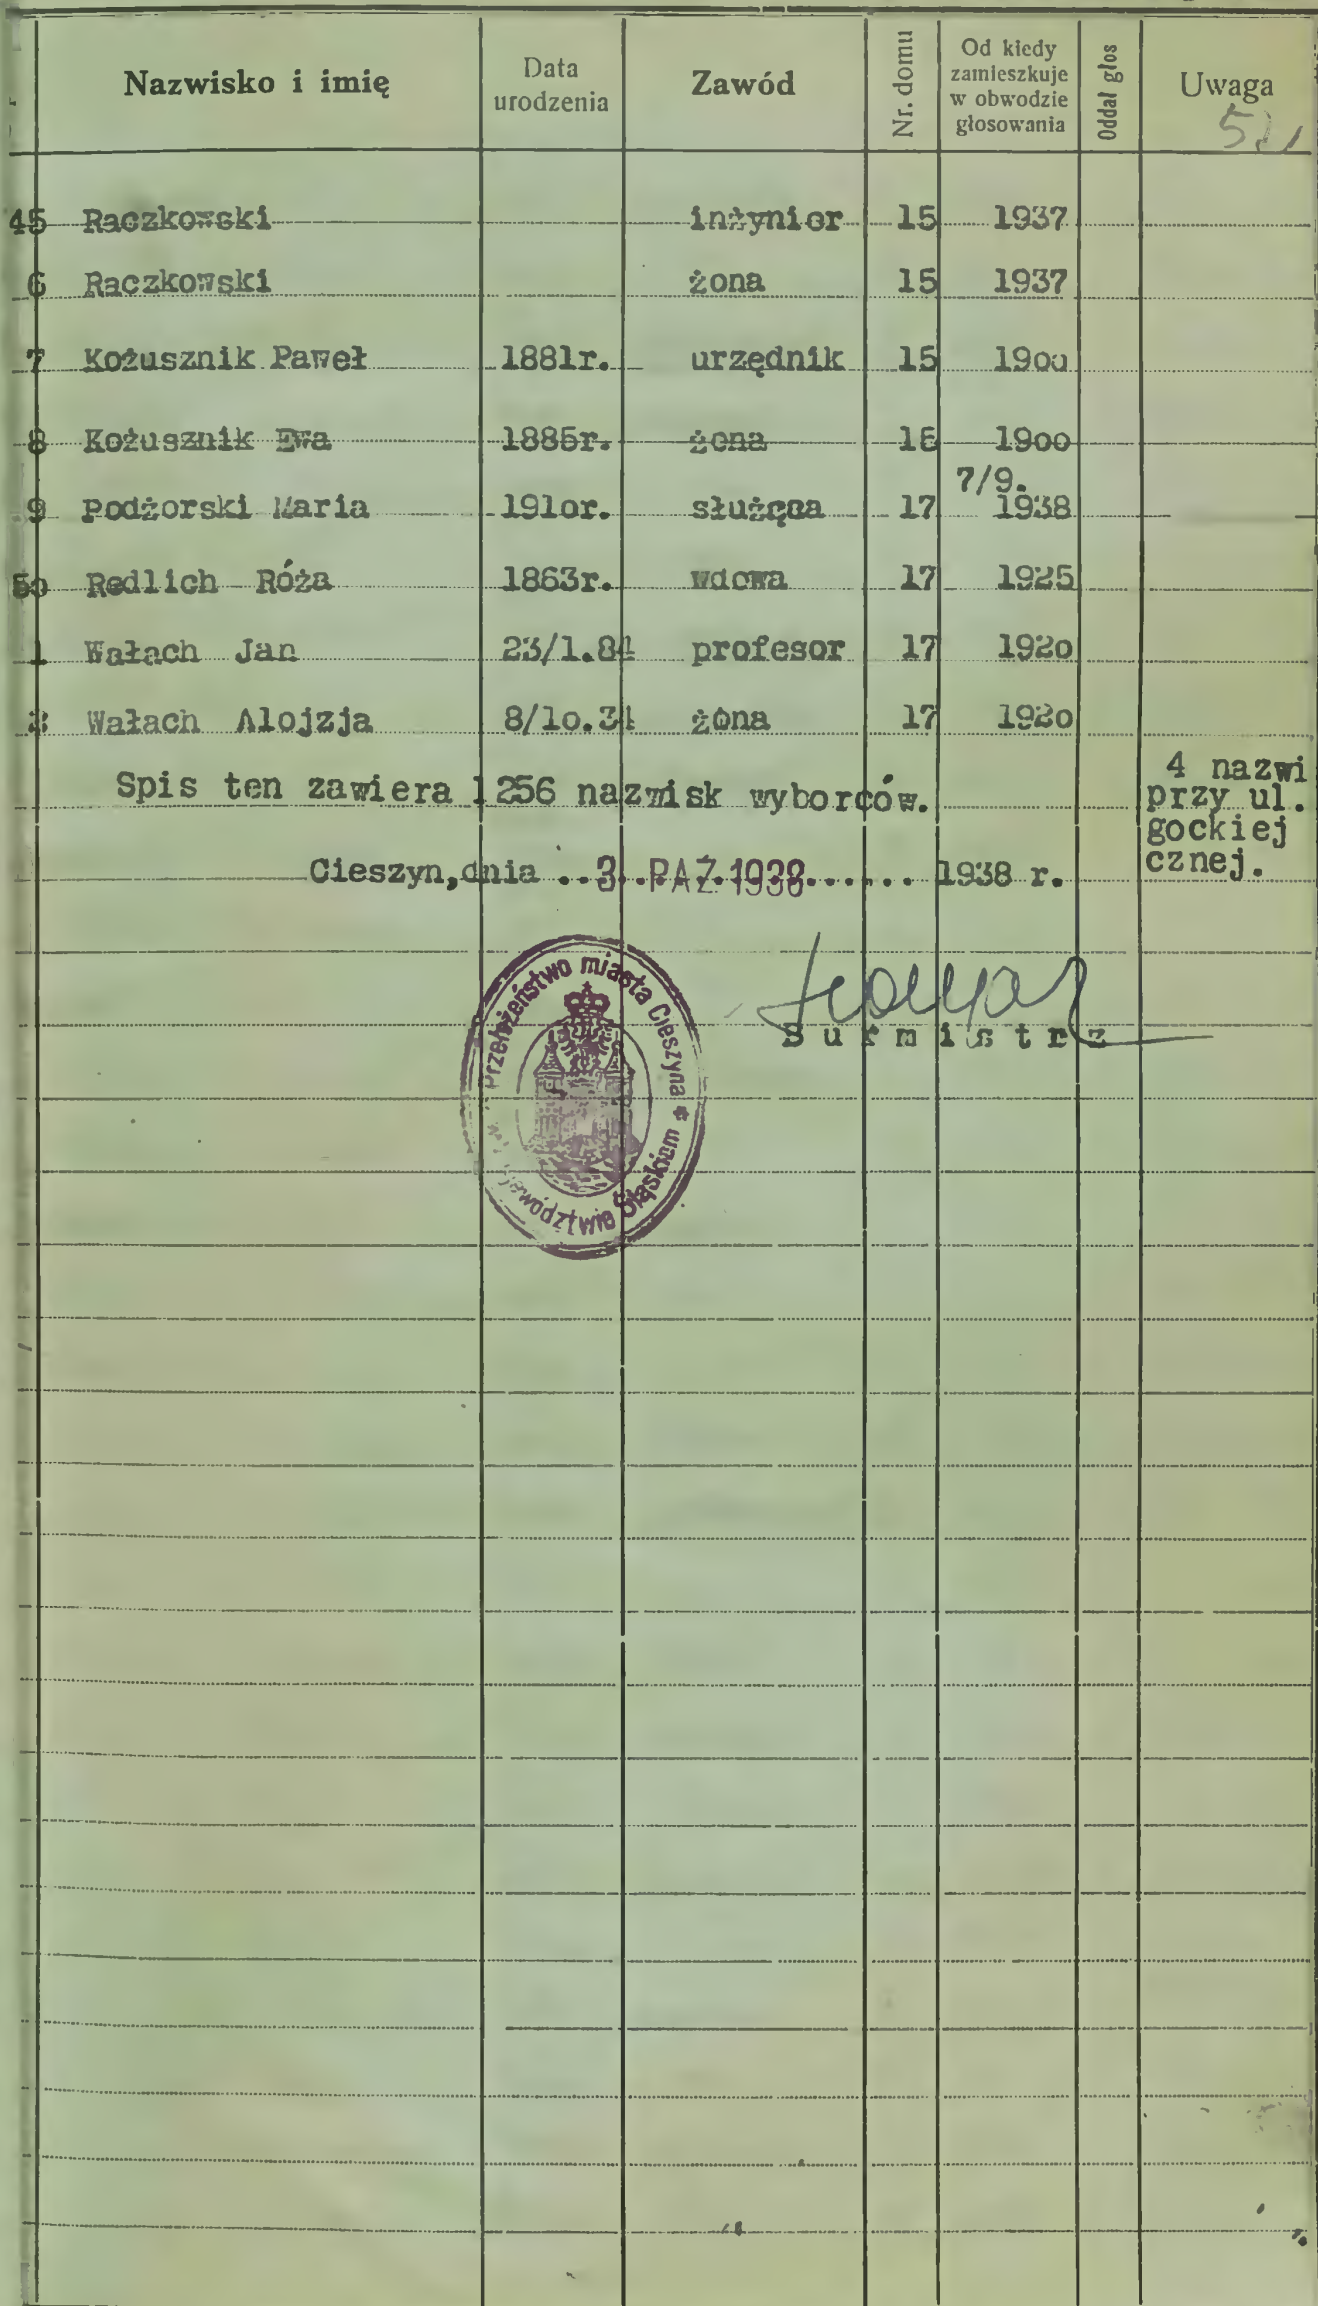 Nazwisko i imię | Data urodzenia | Zawód | Nr. domu | Od kiedy zamieszkuje w obwodzie głosowania | Oddał głos | Uwaga
45 Raczkowski inżynier 15 1937
6 Raczkowski żona 15 1937
7 Kożusznik Paweł 1881r. urzędnik 15 19oo
8 Kożusznik Ewa 1885r. żona 15 19oo
9 Podżorski Maria 191or. służąca 17 7/9. 1938
5o Redlich Róża 1863r. wdowa 17 1925
1 Wałach Jan 23/1.84 profesor 17 192o
2 Wałach Alojzja 8/1o.34 żona 17 192o
Spis ten zawiera 1256 nazwisk wyborców.
4 nazwi
przy ul.
gockiej
cznej.
Cieszyn,dnia ..3 PAŹ.1938...... 1938 r.
Burmistrz
Przełożeństwo miasta Cieszyna * w Województwie Śląskiem